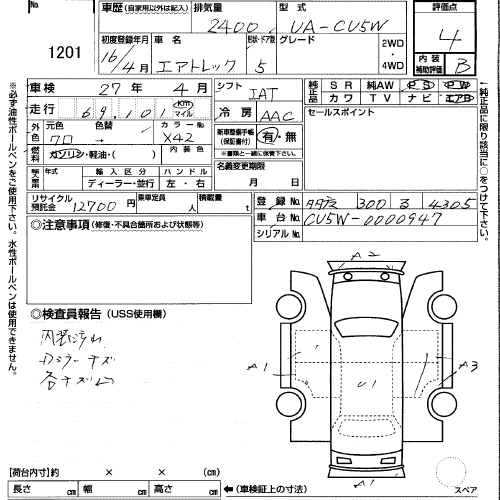 No.
1201
車歴 (自家用以外は記入)
排気量
2400
型式
UA-CU5W
評価点
4
初度登録年月
16/4月
車名
エアトレック
形状・ドア数
5
グレード
2WD
・
4WD
内装
補助評価
B
車検 27年 4月
シフト
IAT
純正品
SR 純AW PS PW
カワ TV ナビ エアB
走行 69,101 Km マイル
冷房
AAC
セールスポイント
外色
元色
クロ
色替
カラーNo.
X42
新車整備手帳
(保証書付)
有・無
※書類と一緒に保管下さい。
燃料
ガソリン・軽油・( )
内装色
輸入車
年式
輸入区分
ディーラー・並行
ハンドル
左・右
名義変更期限
月 日
リサイクル預託金
12700円
乗車定員
人
積載量
t
登録No.
300 3 4305
車台No.
CU5W-0000947
シリアルNo.
◎注意事項(修復・不具合箇所および状態等)
◎検査員報告(USS使用欄)
内装汚れ
A2
A1
U1
A3
A1
スペア
(荷台内寸)約 × × (cm)
長さ cm 幅 cm 高さ cm
←(車検証上の寸法)
※必ず油性ボールペンをご使用下さい。水性ボールペンは使用できません。
←純正品に限り該当に○をつけて下さい。